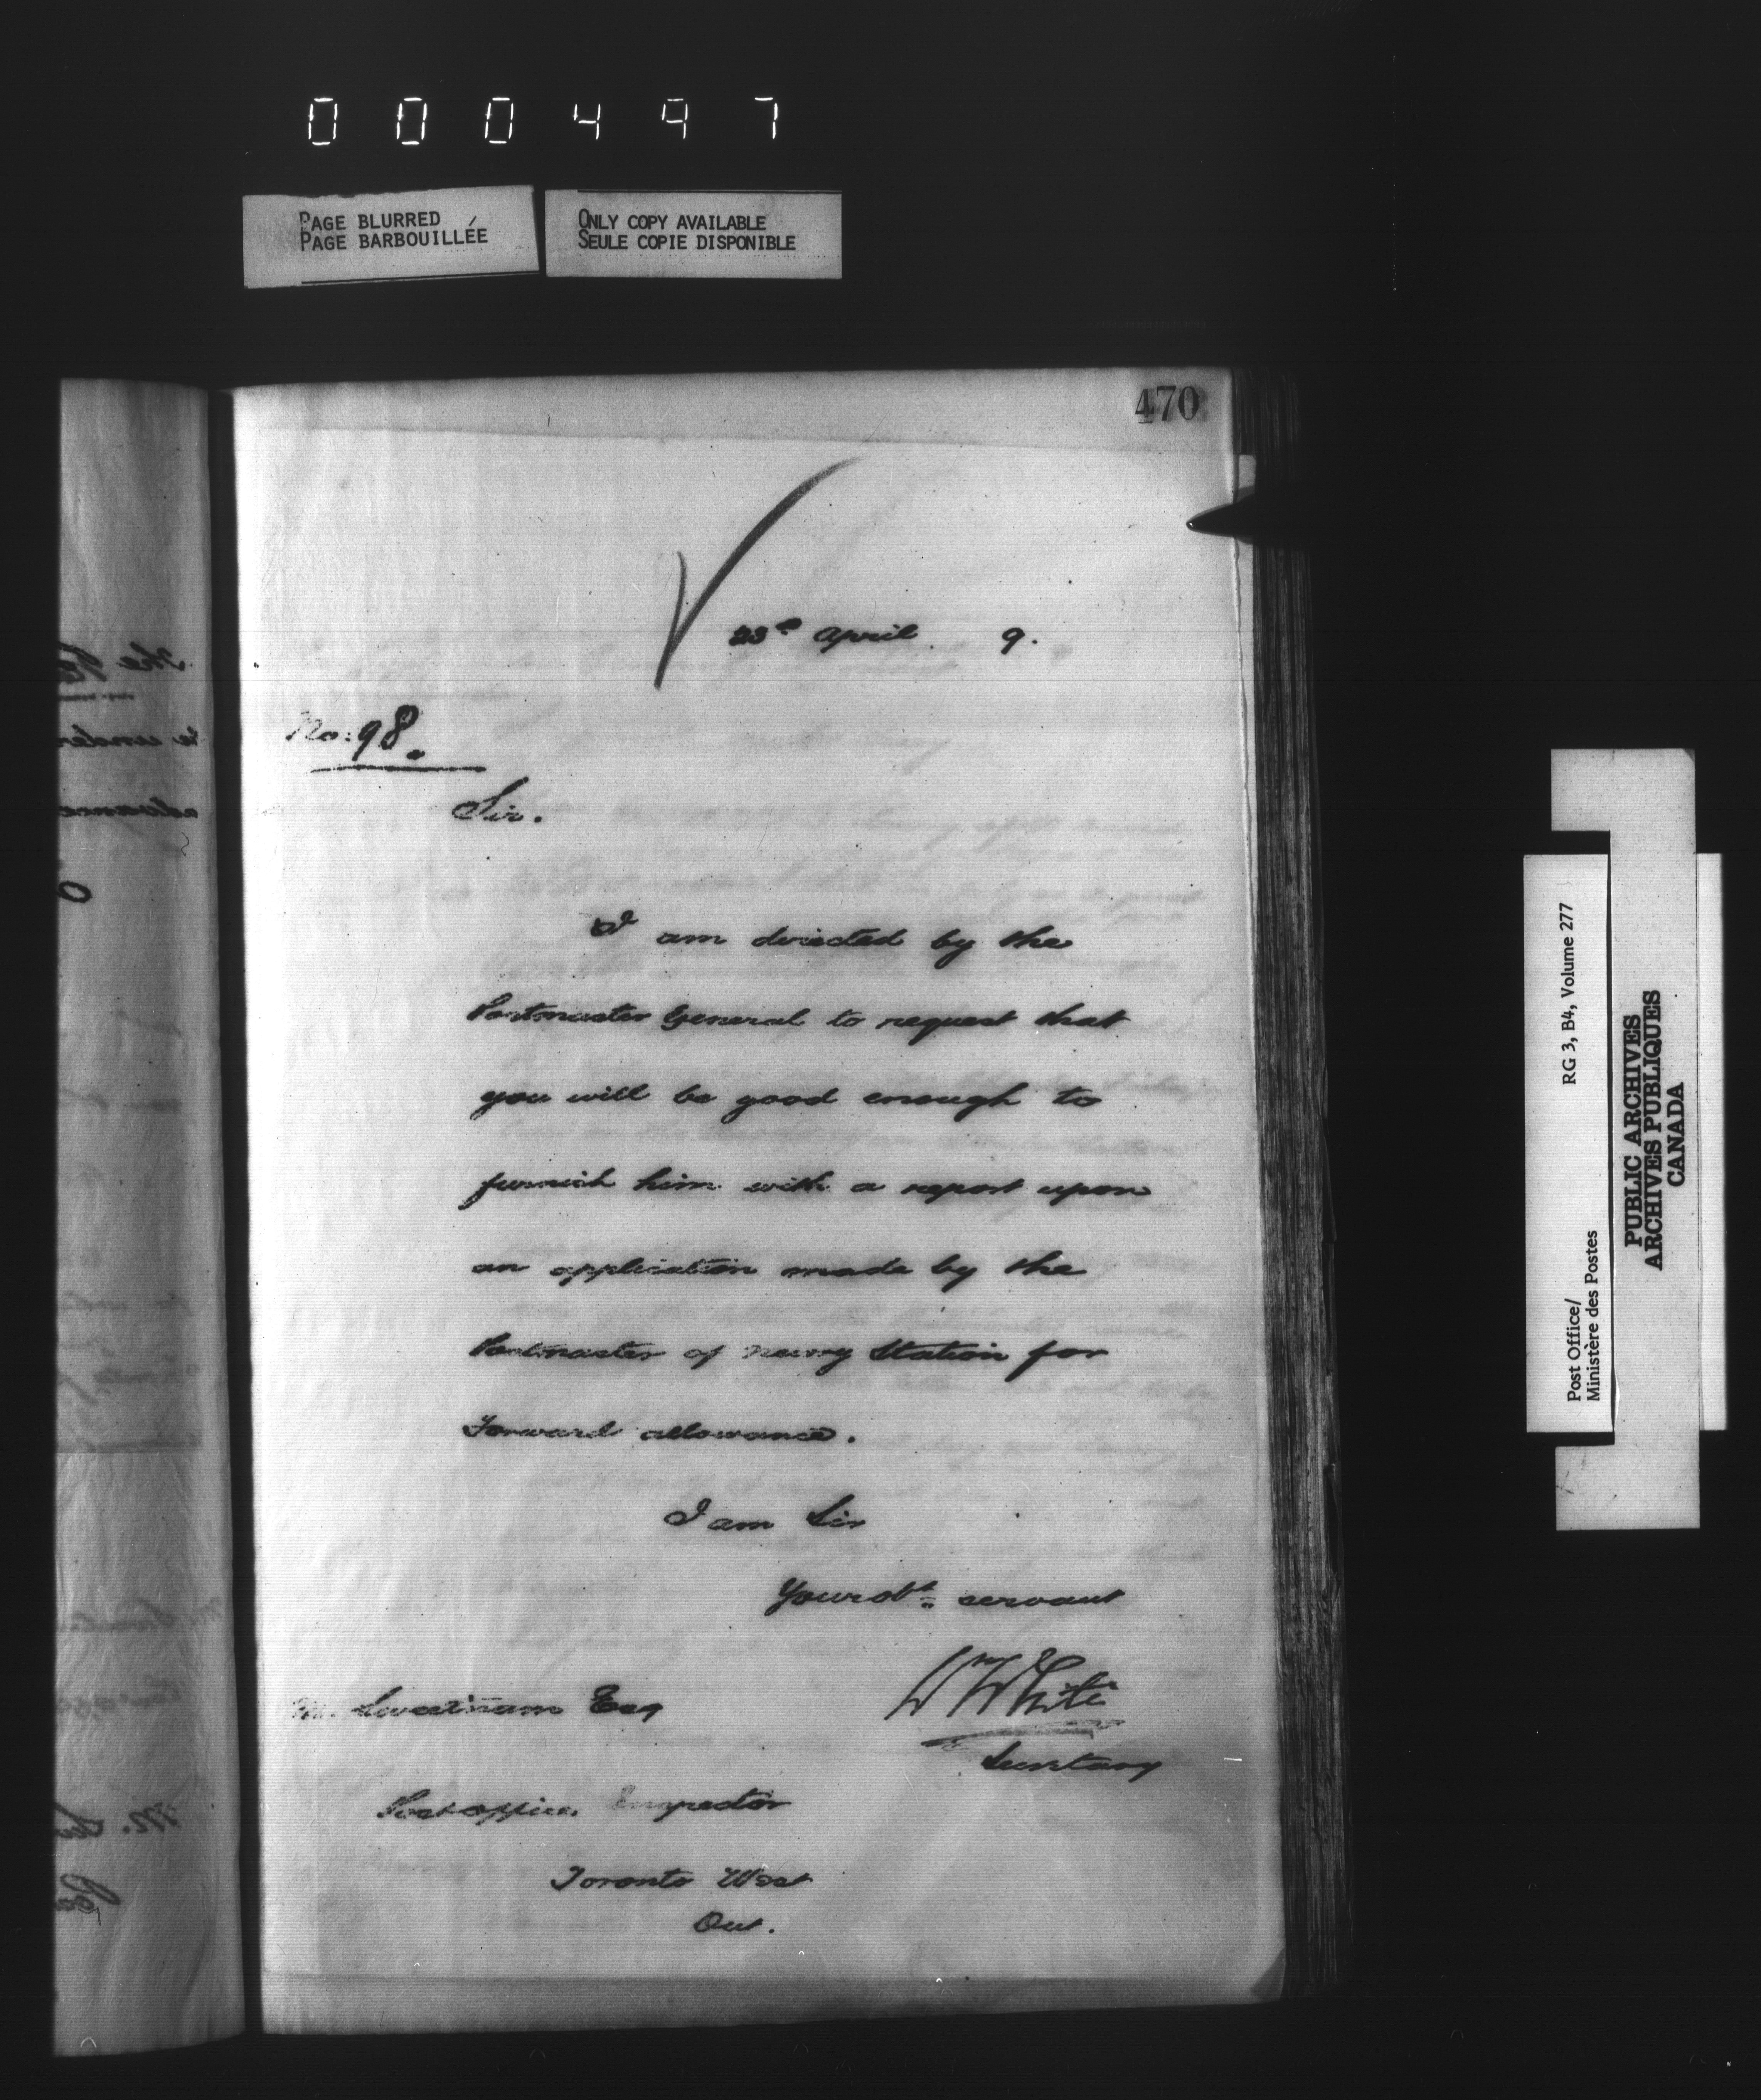 000497
PAGE BLURRED
PAGE BARBOUILLÉE
ONLY COPY AVAILABLE
SEULE COPIE DISPONIBLE
470
23rd April 9.
No. 98.
Sir.
I am directed by the
Postmaster General to request that
you will be good enough to
furnish him with a report upon
an application made by the
Postmaster of Newry Station for
Forward allowance.
I am Sir
Your obt. servant
Wm White
Secretary
M. Sweetnam Esq
Post office Inspector
Toronto West
Ont.
RG 3, B4, Volume 277
Post Office/
Ministère des Postes
PUBLIC ARCHIVES
ARCHIVES PUBLIQUES
CANADA